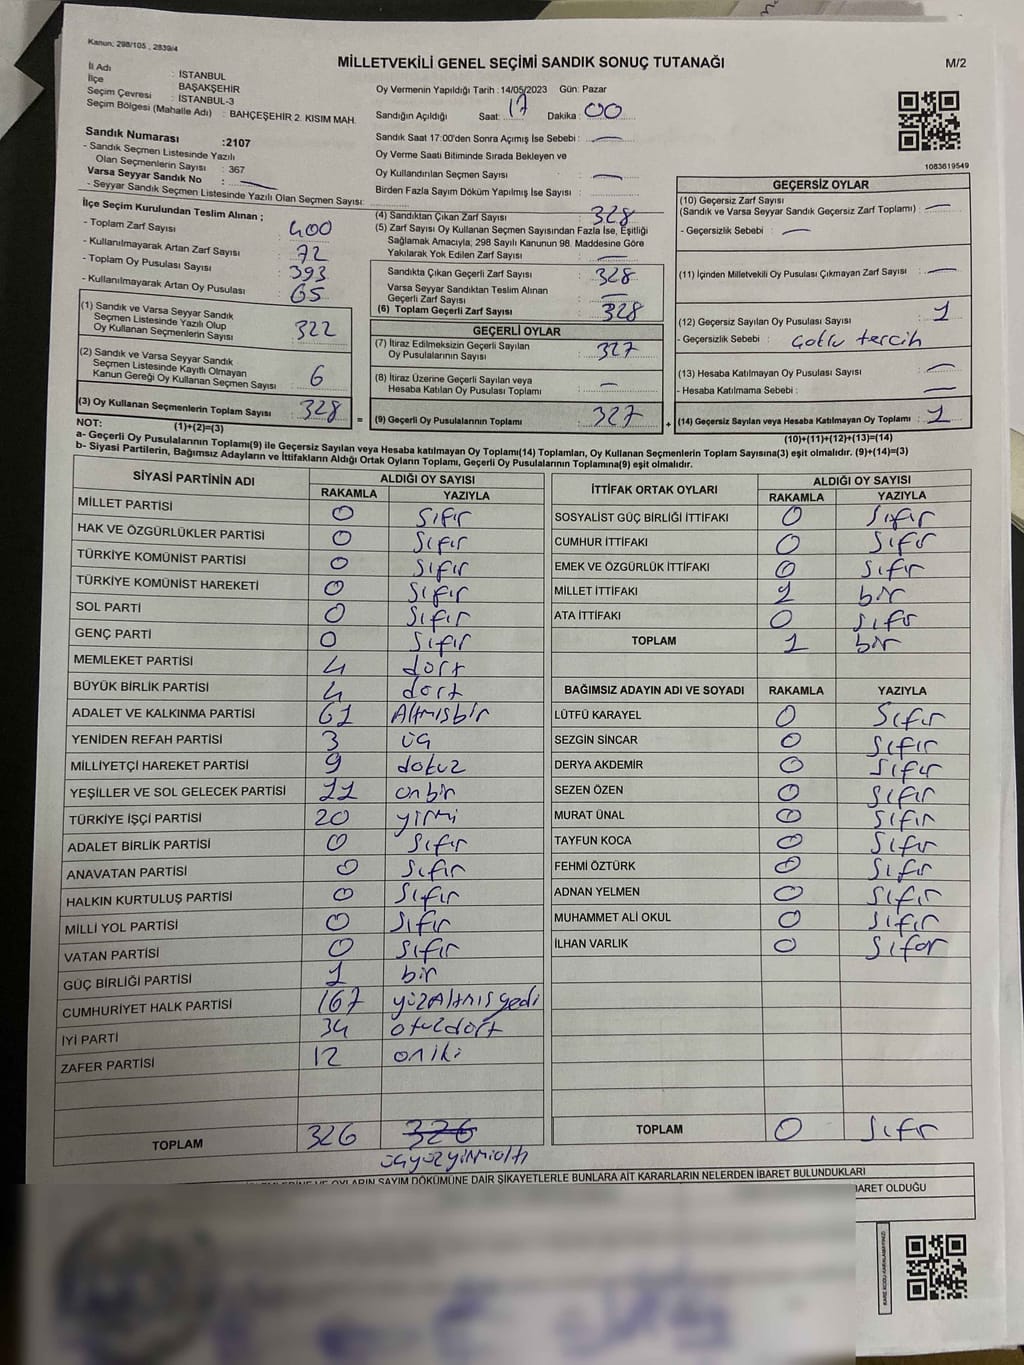 Kanun; 298/105 , 2839/4
MİLLETVEKİLİ GENEL SEÇİMİ SANDIK SONUÇ TUTANAĞI
M/2
İl Adı : İSTANBUL
İlçe : BAŞAKŞEHİR
Seçim Çevresi : İSTANBUL-3
Seçim Bölgesi (Mahalle Adı) : BAHÇEŞEHİR 2. KISIM MAH.
Sandık Numarası :2107
- Sandık Seçmen Listesinde Yazılı
Olan Seçmenlerin Sayısı : 367
Varsa Seyyar Sandık No :
- Seyyar Sandık Seçmen Listesinde Yazılı Olan Seçmen Sayısı:
Oy Vermenin Yapıldığı Tarih : 14/05/2023 Gün: Pazar
Sandığın Açıldığı Saat: 17 Dakika : 00
Sandık Saat 17:00'den Sonra Açımış İse Sebebi :
Oy Verme Saati Bitiminde Sırada Bekleyen ve
Oy Kullandırılan Seçmen Sayısı :
Birden Fazla Sayım Döküm Yapılmış İse Sayısı :
1083619549
İlçe Seçim Kurulundan Teslim Alınan ;
- Toplam Zarf Sayısı : 400
- Kullanılmayarak Artan Zarf Sayısı : 72
- Toplam Oy Pusulası Sayısı : 393
- Kullanılmayarak Artan Oy Pusulası : 65
(1) Sandık ve Varsa Seyyar Sandık
Seçmen Listesinde Yazılı Olup
Oy Kullanan Seçmenlerin Sayısı : 322
(2) Sandık ve Varsa Seyyar Sandık
Seçmen Listesinde Kayıtlı Olmayan
Kanun Gereği Oy Kullanan Seçmen Sayısı : 6
(3) Oy Kullanan Seçmenlerin Toplam Sayısı : 328 =
(4) Sandıktan Çıkan Zarf Sayısı : 328
(5) Zarf Sayısı Oy Kullanan Seçmen Sayısından Fazla İse, Eşitliği
Sağlamak Amacıyla, 298 Sayılı Kanunun 98. Maddesine Göre
Yakılarak Yok Edilen Zarf Sayısı :
Sandıkta Çıkan Geçerli Zarf Sayısı : 328
Varsa Seyyar Sandıktan Teslim Alınan
Geçerli Zarf Sayısı :
(6) Toplam Geçerli Zarf Sayısı : 328
GEÇERLİ OYLAR
(7) İtiraz Edilmeksizin Geçerli Sayılan
Oy Pusulalarının Sayısı : 327
(8) İtiraz Üzerine Geçerli Sayılan veya
Hesaba Katılan Oy Pusulası Toplamı :
(9) Geçerli Oy Pusulalarının Toplamı : 327 +
GEÇERSİZ OYLAR
(10) Geçersiz Zarf Sayısı
(Sandık ve Varsa Seyyar Sandık Geçersiz Zarf Toplamı) :
- Geçersizlik Sebebi :
(11) İçinden Milletvekili Oy Pusulası Çıkmayan Zarf Sayısı :
(12) Geçersiz Sayılan Oy Pusulası Sayısı : 1
- Geçersizlik Sebebi : Çoklu tercih
(13) Hesaba Katılmayan Oy Pusulası Sayısı :
- Hesaba Katılmama Sebebi :
(14) Geçersiz Sayılan veya Hesaba Katılmayan Oy Toplamı : 1
NOT: (1)+(2)=(3)
(10)+(11)+(12)+(13)=(14)
a- Geçerli Oy Pusulalarının Toplamı(9) ile Geçersiz Sayılan veya Hesaba katılmayan Oy Toplamı(14) Toplamları, Oy Kullanan Seçmenlerin Toplam Sayısına(3) eşit olmalıdır. (9)+(14)=(3)
b- Siyasi Partilerin, Bağımsız Adayların ve İttifakların Aldığı Ortak Oyların Toplamı, Geçerli Oy Pusulalarının Toplamına(9) eşit olmalıdır.
SİYASİ PARTİNİN ADI ALDIĞI OY SAYISI
RAKAMLA YAZIYLA
MİLLET PARTİSİ 0 Sıfır
HAK VE ÖZGÜRLÜKLER PARTİSİ 0 Sıfır
TÜRKİYE KOMÜNİST PARTİSİ 0 Sıfır
TÜRKİYE KOMÜNİST HAREKETİ 0 Sıfır
SOL PARTİ 0 Sıfır
GENÇ PARTİ 0 Sıfır
MEMLEKET PARTİSİ 4 dört
BÜYÜK BİRLİK PARTİSİ 4 dört
ADALET VE KALKINMA PARTİSİ 61 Altmışbir
YENİDEN REFAH PARTİSİ 3 üç
MİLLİYETÇİ HAREKET PARTİSİ 9 dokuz
YEŞİLLER VE SOL GELECEK PARTİSİ 11 onbir
TÜRKİYE İŞÇİ PARTİSİ 20 yirmi
ADALET BİRLİK PARTİSİ 0 Sıfır
ANAVATAN PARTİSİ 0 Sıfır
HALKIN KURTULUŞ PARTİSİ 0 Sıfır
MİLLİ YOL PARTİSİ 0 Sıfır
VATAN PARTİSİ 0 Sıfır
GÜÇ BİRLİĞİ PARTİSİ 1 bir
CUMHURİYET HALK PARTİSİ 167 yüzAltmışyedi
İYİ PARTİ 34 otuzdört
ZAFER PARTİSİ 12 oniki
TOPLAM 326 326
üçyüzyirmialtı
İTTİFAK ORTAK OYLARI ALDIĞI OY SAYISI
RAKAMLA YAZIYLA
SOSYALİST GÜÇ BİRLİĞİ İTTİFAKI 0 Sıfır
CUMHUR İTTİFAKI 0 Sıfır
EMEK VE ÖZGÜRLÜK İTTİFAKI 0 Sıfır
MİLLET İTTİFAKI 1 bir
ATA İTTİFAKI 0 Sıfır
TOPLAM 1 bir
BAĞIMSIZ ADAYIN ADI VE SOYADI RAKAMLA YAZIYLA
LÜTFÜ KARAYEL 0 Sıfır
SEZGİN SİNCAR 0 Sıfır
DERYA AKDEMİR 0 Sıfır
SEZEN ÖZEN 0 Sıfır
MURAT ÜNAL 0 Sıfır
TAYFUN KOCA 0 Sıfır
FEHMİ ÖZTÜRK 0 Sıfır
ADNAN YELMEN 0 Sıfır
MUHAMMET ALİ OKUL 0 Sıfır
İLHAN VARLIK 0 Sıfır
TOPLAM 0 Sıfır
VE OYLARIN SAYIM DÖKÜMÜNE DAİR ŞİKAYETLERLE BUNLARA AİT KARARLARIN NELERDEN İBARET BULUNDUKLARI
BARET OLDUĞU